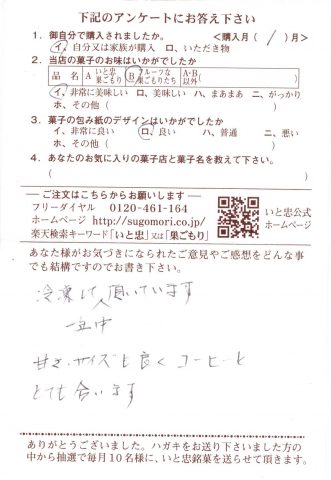 下記のアンケートにお答え下さい
1. 御自分で購入されましたか。 <購入月( 1 )月>
イ、自分又は家族が購入 ロ、いただき物
2. 当店の菓子のお味はいかがでしたか
品名 A いと忠巣ごもり B フルーツな巣ごもりたち A・B以外
イ、非常に美味しい ロ、美味しい ハ、まあまあ ニ、がっかり
ホ、その他( )
3. 菓子の包み紙のデザインはいかがでしたか
イ、非常に良い ロ、良い ハ、普通 ニ、悪い
ホ、その他( )
4. あなたのお気に入りの菓子店と菓子名を教えて下さい。
( )
ご注文はこちらからお願いします
フリーダイヤル 0120-461-164
ホームページ http://sugomori.co.jp/
楽天検索キーワード「いと忠」又は「巣ごもり」
いと忠公式
ホームページ
あなた様がお気づきになられたご意見やご感想をどんな事
でも結構ですのでお書き下さい。
冷凍し頂いています
一年中
甘さ、サイズも良くコーヒーと
とても合います
ありがとうございました。ハガキをお送り下さいました方の
中から抽選で毎月10名様に、いと忠銘菓を送らせて頂きます。